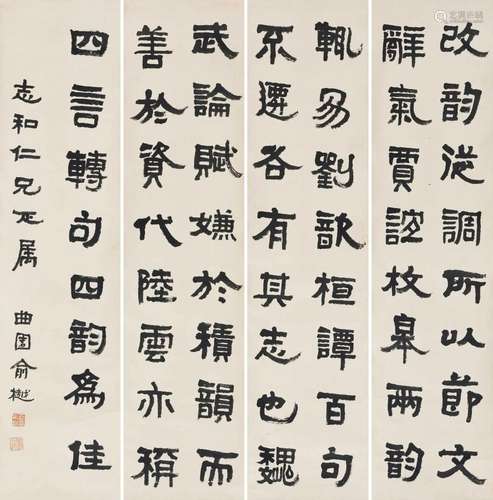 改韵從調所以節文
辭氣賈誼枚皋兩韵
輒易劉歆桓譚百句
不遷各有其志也魏
武論賦嫌於積韻而
善於資代陸雲亦稱
四言轉句四韵為佳
志和仁兄正属 曲園俞樾